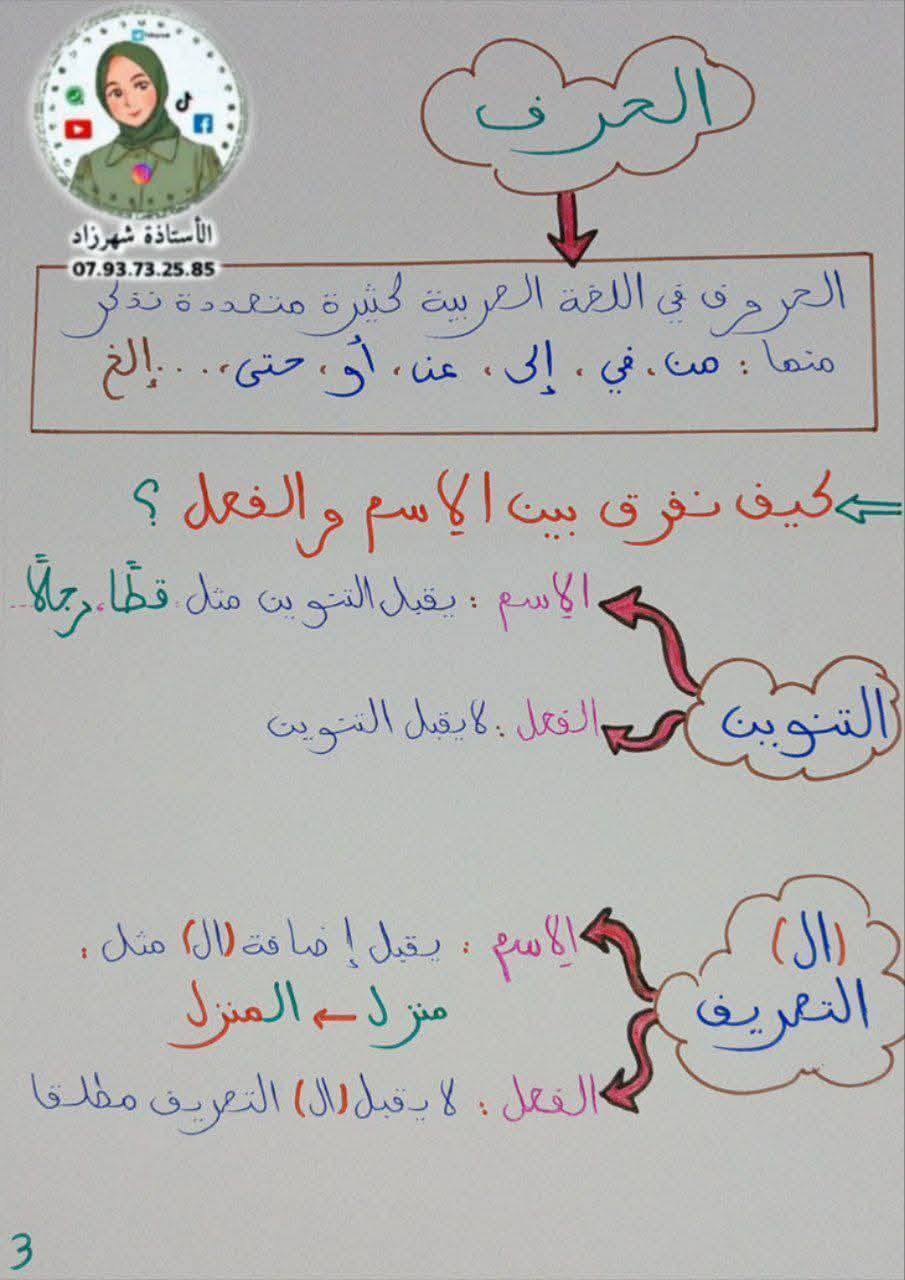 الحرف
الأستاذة شهرزاد
07.93.73.25.85
الحروف في اللغة العربية كثيرة متعددة نذكر
منها : من، في ، إلى ، عن ، أو ، حتى ، ... إلخ
كيف نفرق بين الإسم والفعل ؟
التنوين
الإسم : يقبل التنوين مثل : قطًّا، رجلًا...
الفعل : لا يقبل التنوين
(ال)
التعريف
الإسم : يقبل إضافة (ال) مثل :
منزل ← المنزل
الفعل : لا يقبل (ال) التعريف مطلقا
3